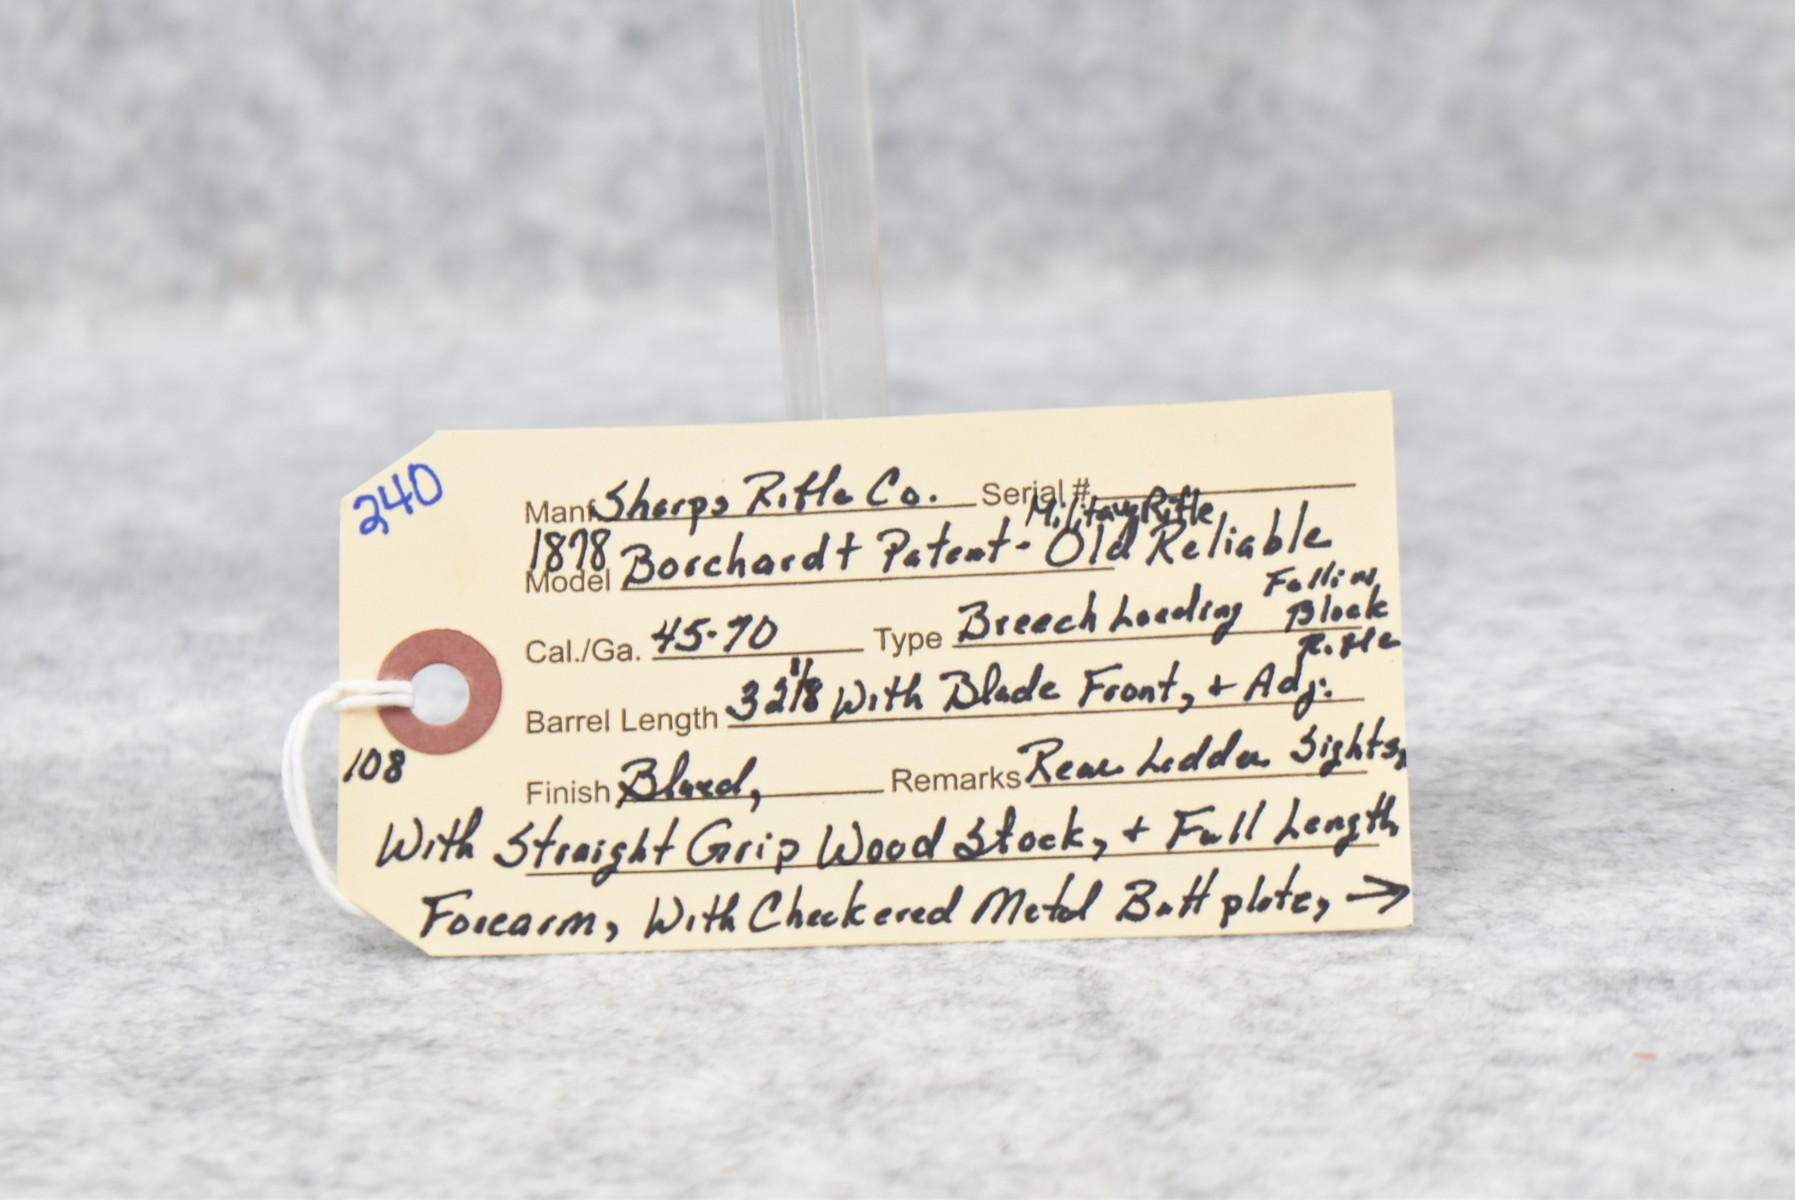 240
Manf Sharps Rifle Co. Serial #
Military Rifle
1878
Model Borchardt Patent - Old Reliable
Falling
Cal./Ga. 45-70 Type Breech Loading Block
Rifle
Barrel Length 32 1/8" With Blade Front, + Adj.
108
Finish Blued, Remarks Rear Ladder Sights,
With Straight Grip Wood Stock, + Full Length
Forearm, With Checkered Metal Buttplate, →